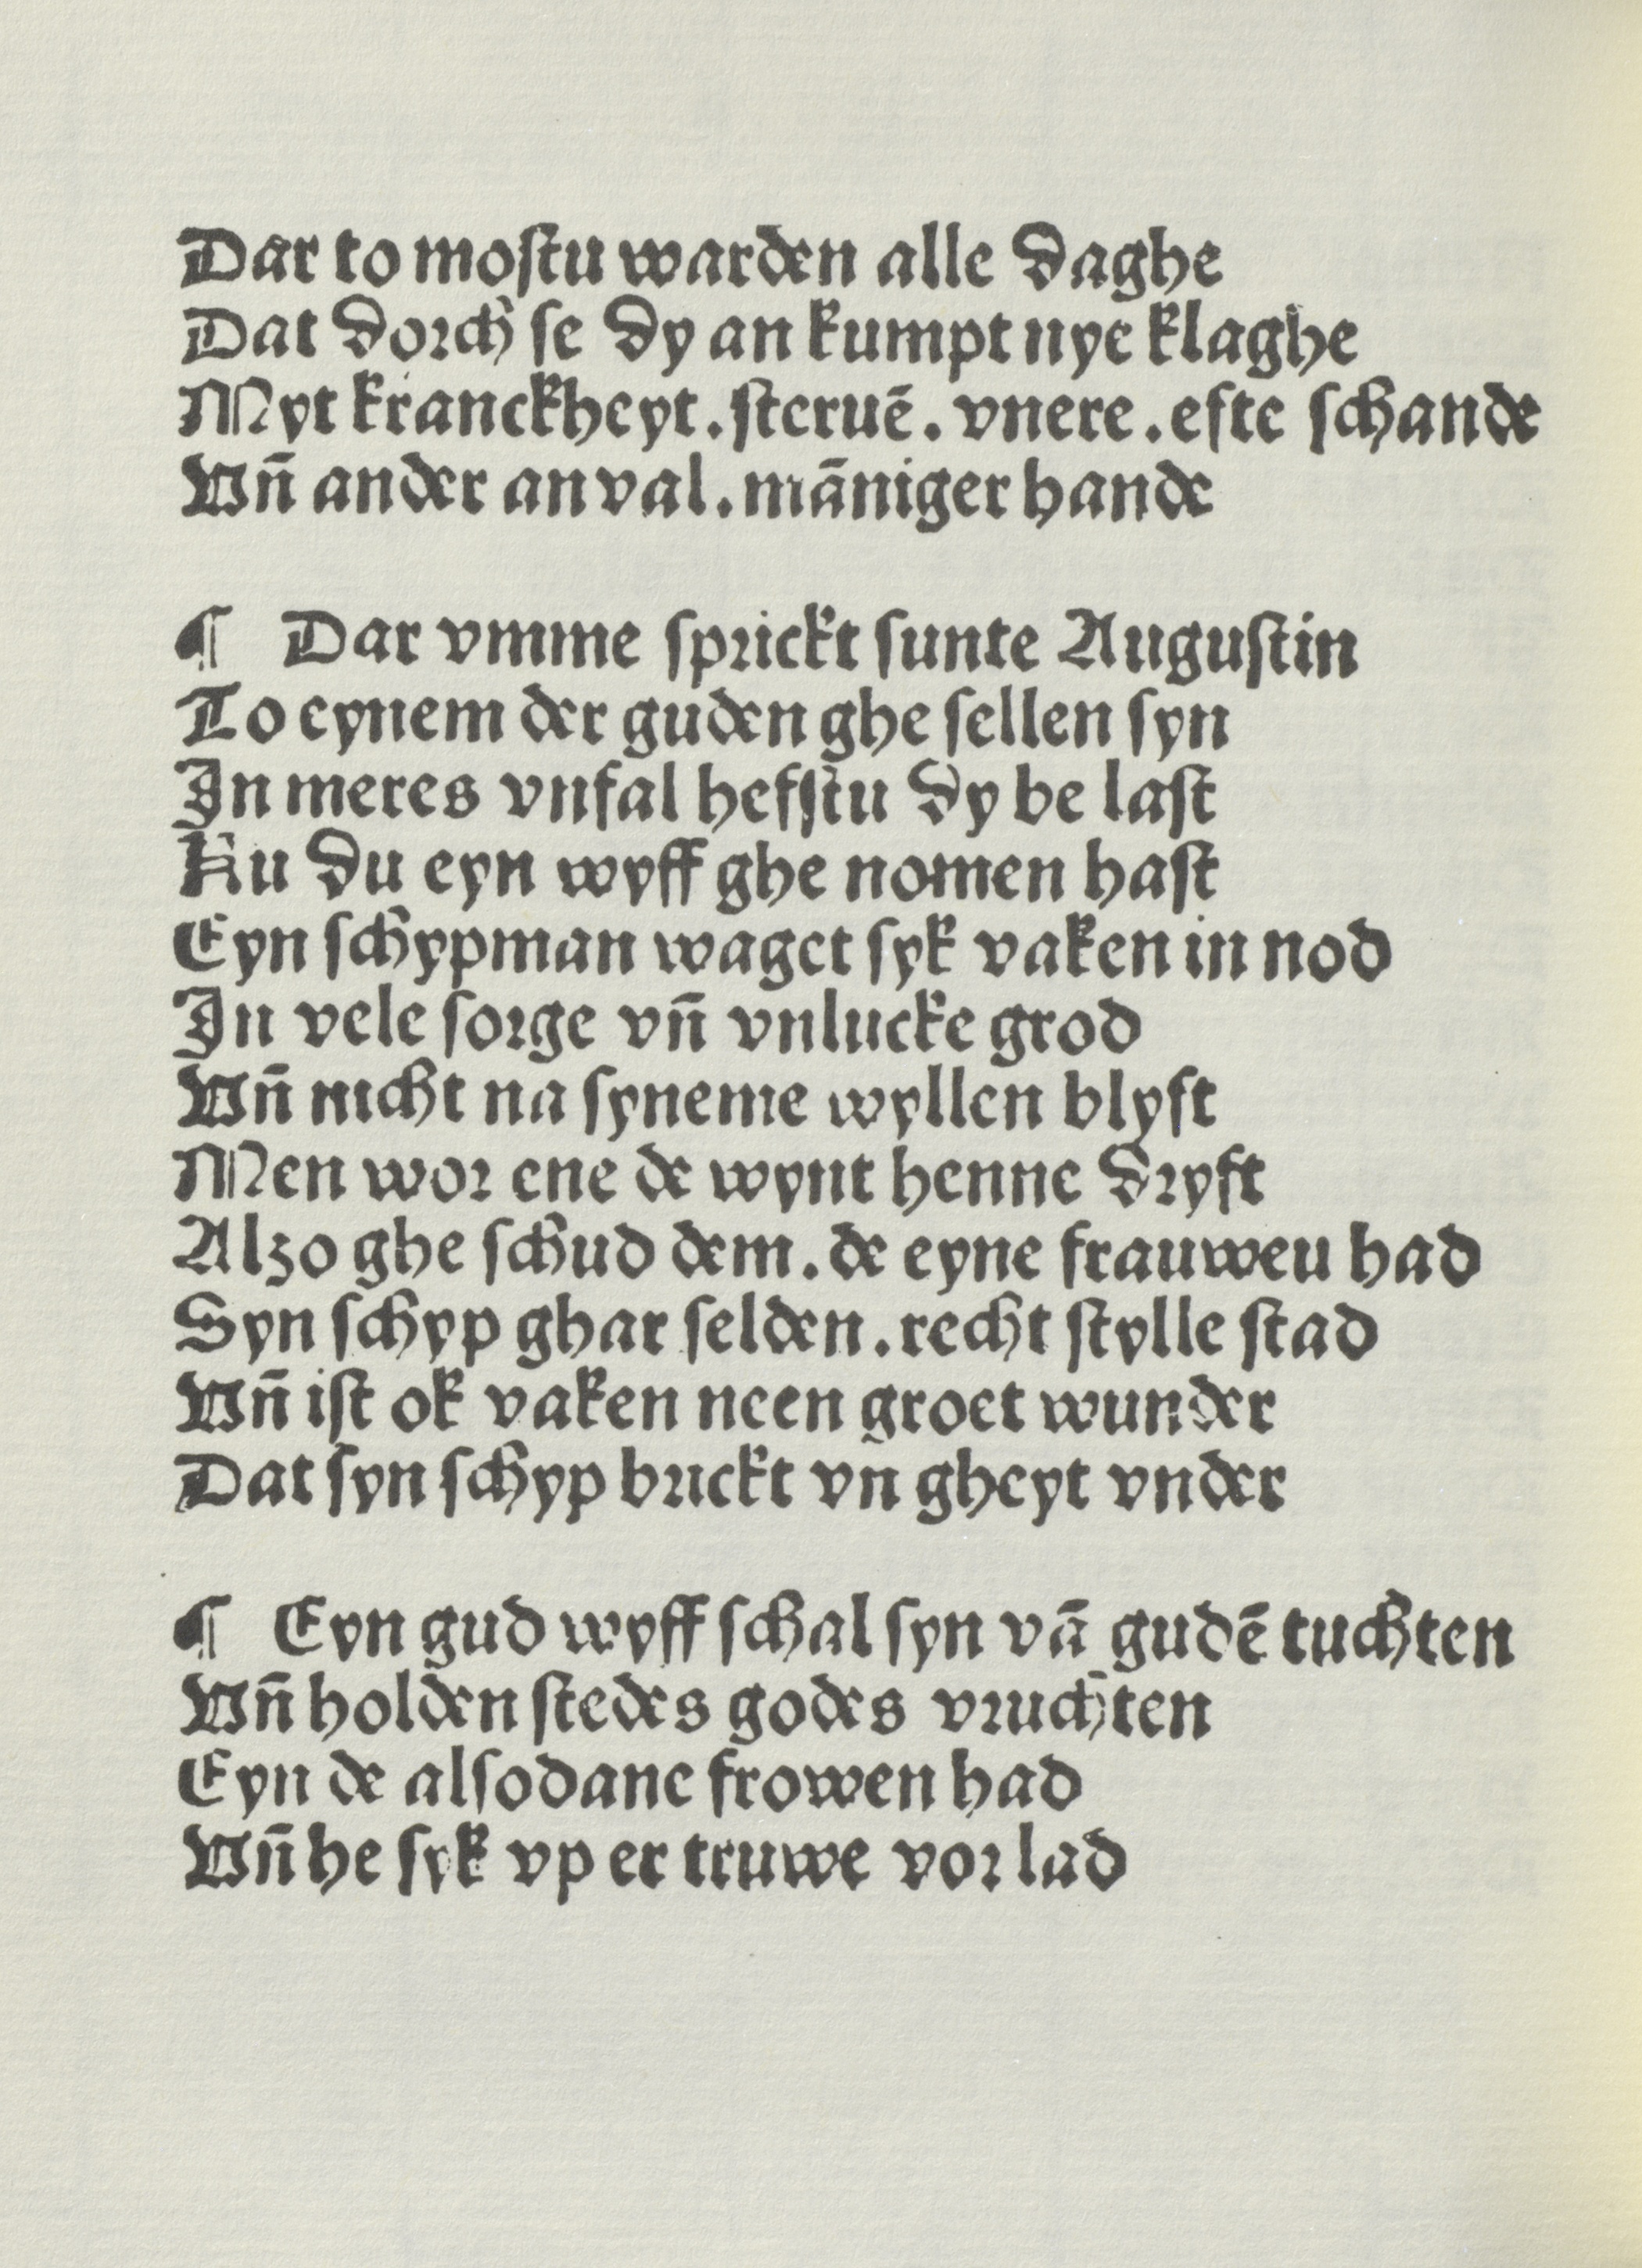 Dar to moſtu warden alle daghe
Dat dorch ſe dy an kumpt nye klaghe
Myt kranckheyt. ſteruē. vnere. efte ſchande
Vn̄ ander anval. māniger hande
¶ Dar vmme ſprickt ſunte Auguſtin
To eynem der guden ghe ſellen ſyn
In meres vnfal hefſtu dy be laſt
Nu du eyn wyff ghe nomen haſt
Eyn ſchypman waget ſyk vaken in nod
In vele ſorge vn̄ vnlucke grod
Vn̄ nicht na ſyneme wyllen blyft
Men wor ene de wynt henne dryft
Alzo ghe ſchud dem. de eyne frauweu had
Syn ſchyp ghar ſelden. recht ſtylle ſtad
Vn̄ iſt ok vaken neen groet wunder
Dat ſyn ſchyp brickt vn gheyt vnder
¶ Eyn gud wyff ſchal ſyn vā gudē tuchten
Vn̄ holden ſtedes godes vruchten
Eyn de alſodane frowen had
Vn̄ he ſyk vp er truwe vor lad